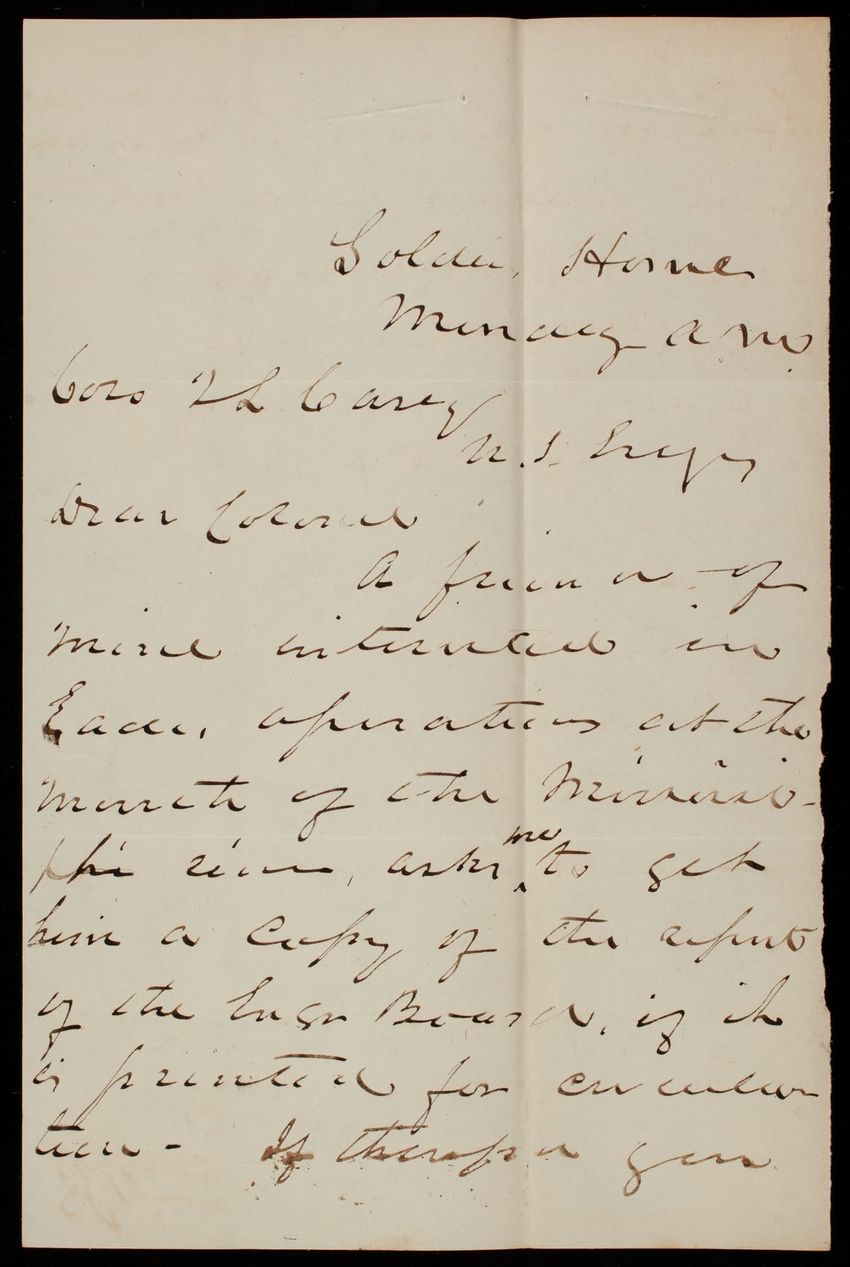 Soldiers Home
Monday a m
Col T L Casey
U.S. Engrs
Dear Colonel
A friend of
mine interested in
Eads, operations at the
mouth of the Mississip-
pi river, asks me to get
him a copy of the report
of the Engr Board, if it
is printed for circula-
tion - If therefore you